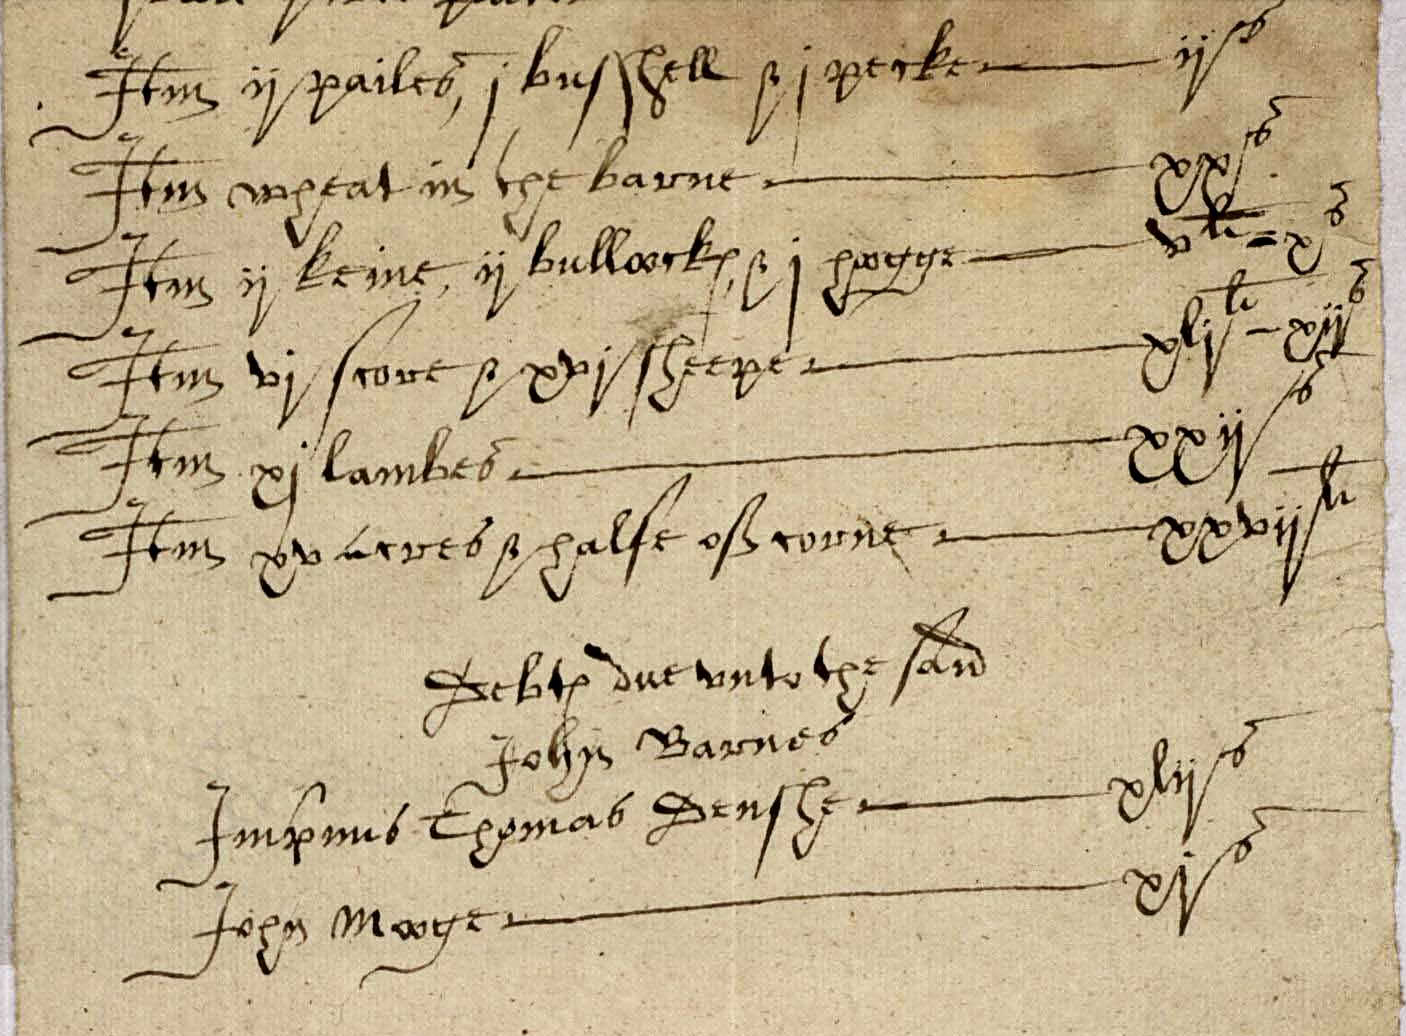 Itm ij pailes, j busshell & j pecke ijs
Itm wheat in the barne xxs
Itm ij keine, ij bullockes, & j hogge vli - xs
Itm vj score & xvj sheepe xljli - xijs
Itm xj lambes xxijs
Itm xv acres & halfe off corne xxvijli
Debtes due vnto the said
John Barnes
Imprimis Thomas Denshe xlijs
John Mooge xjs